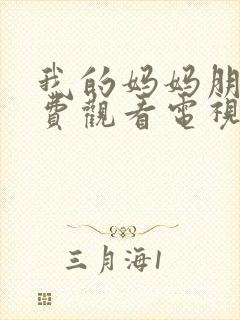 我的妈妈朋
費觀看電視
三月海1